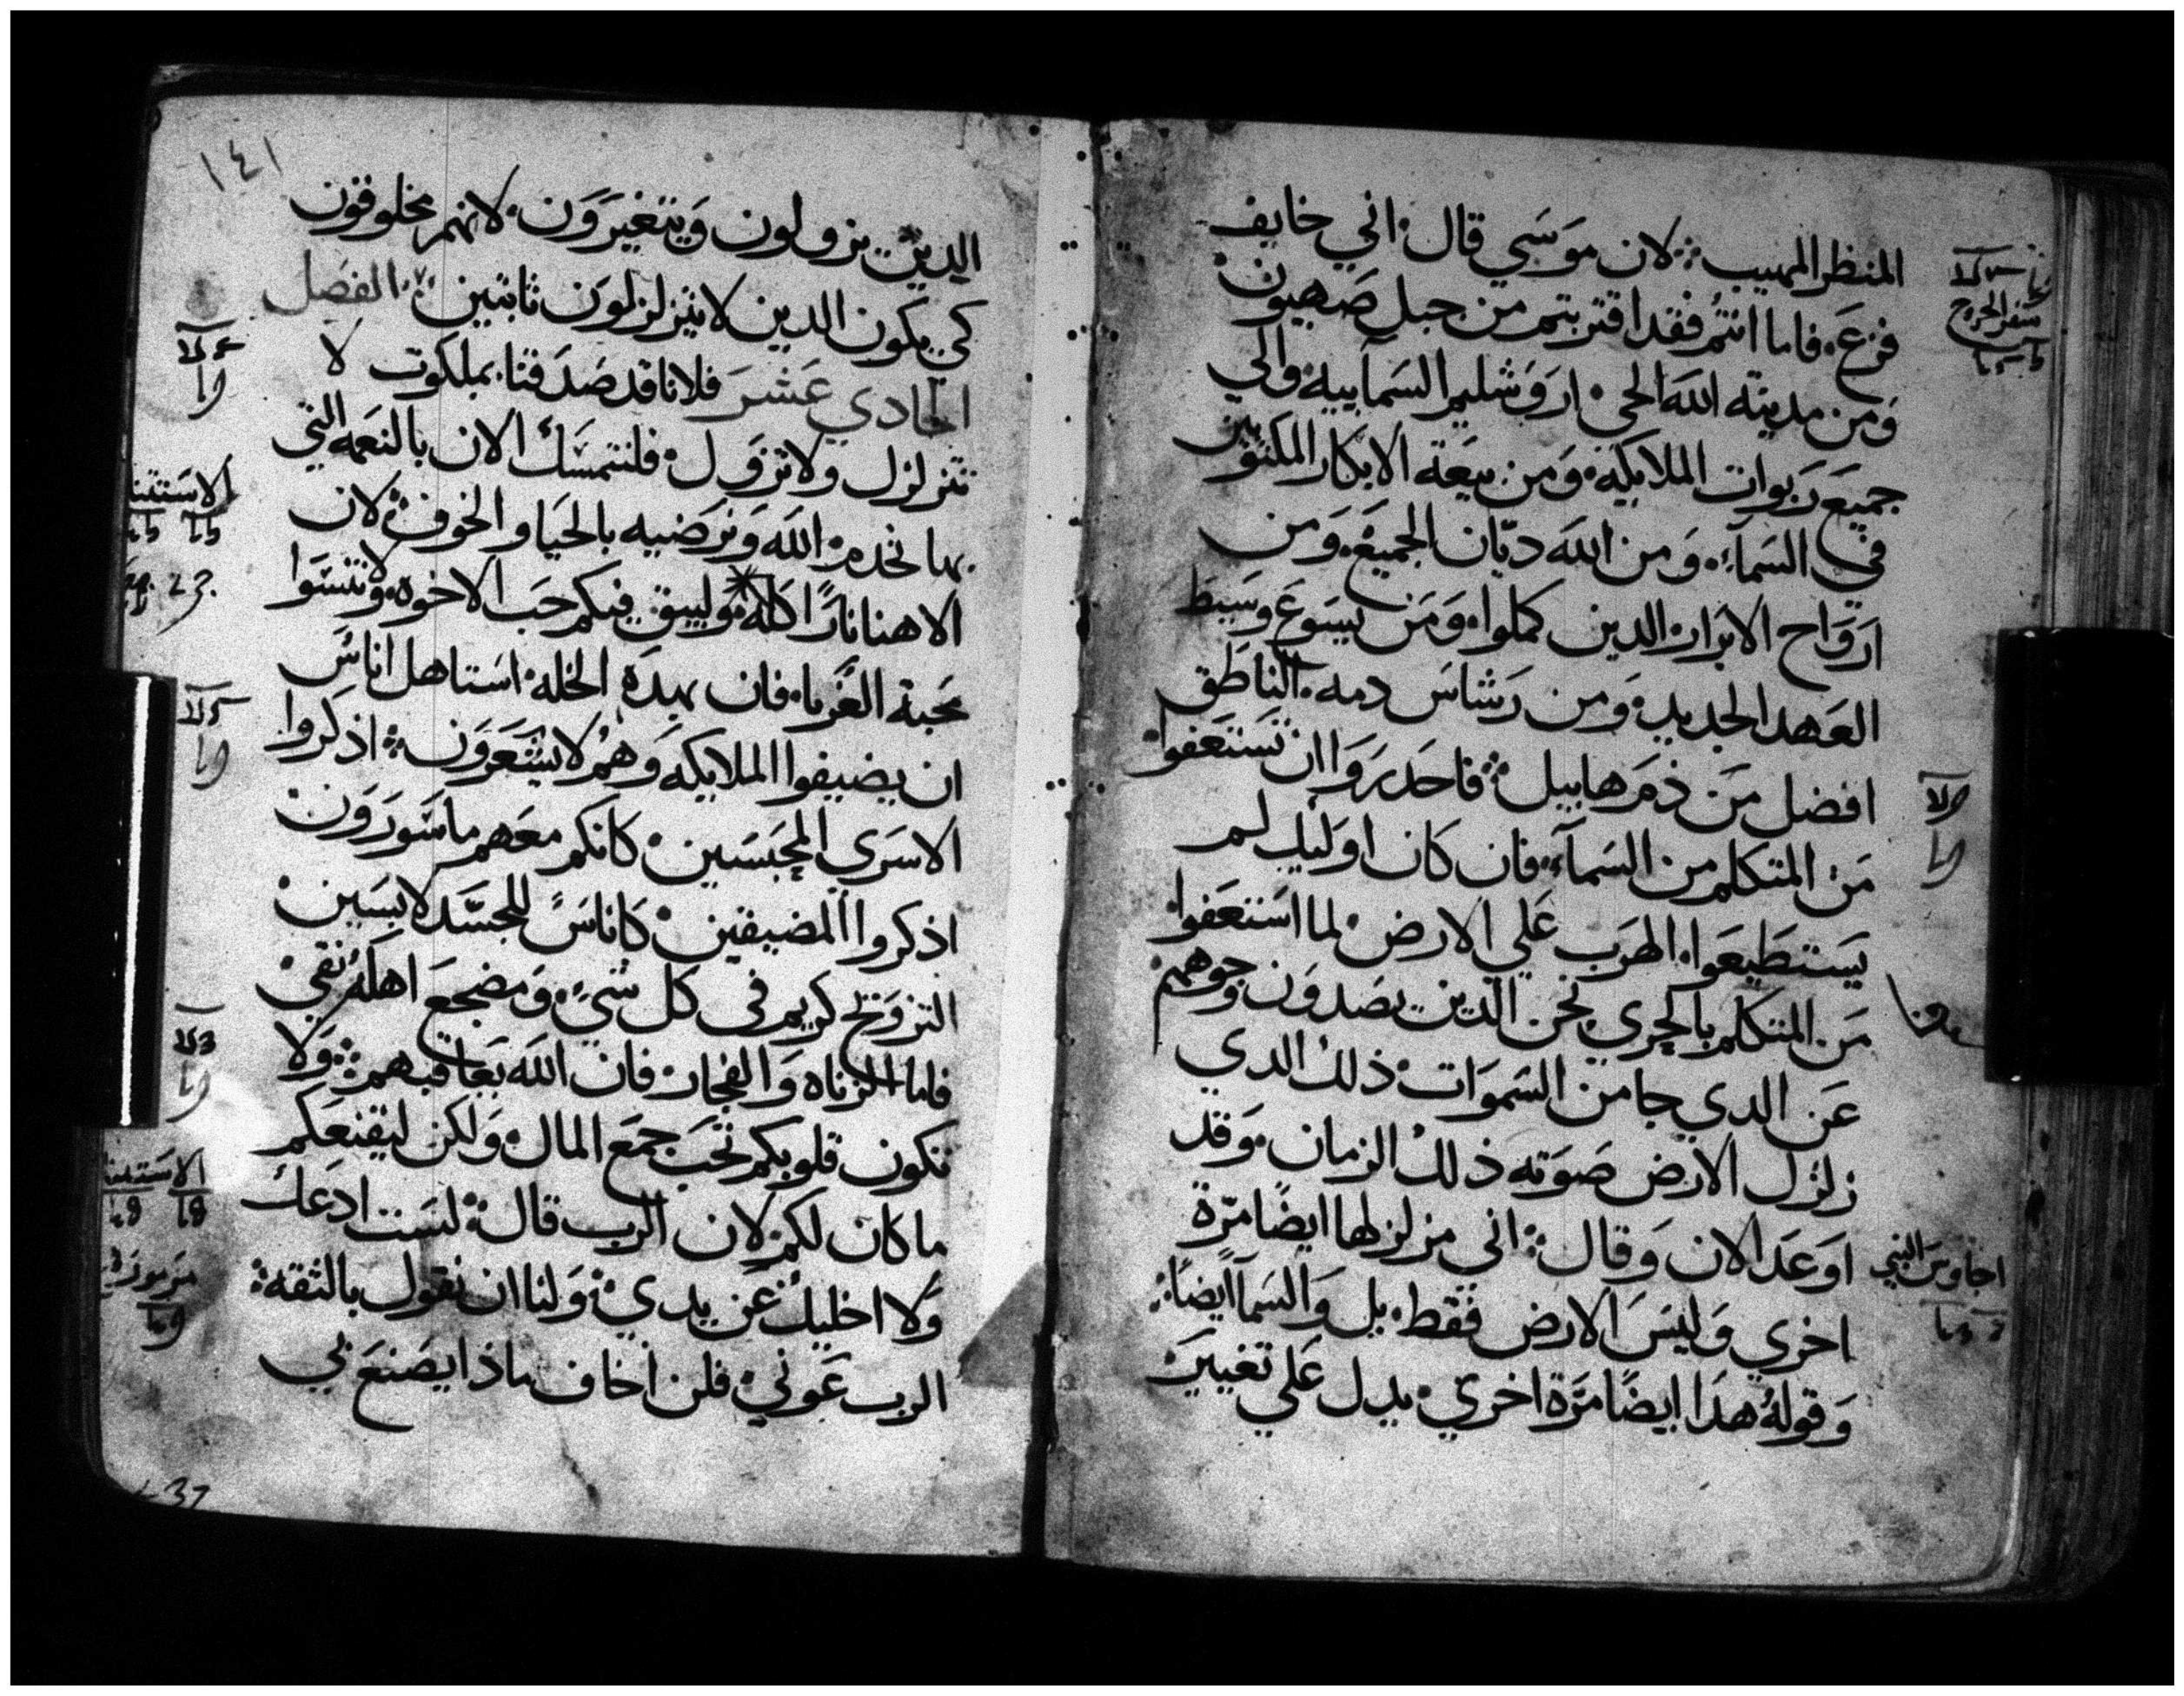 المنظر المهيب لان موسي قال اني خايف
فزع فاما انتم فقد اقتربتم من جبل صهيون
ومن مدينه الله الحي اروشليم السمآييه والي
جميع ربوات الملايكه ومن بيعة الابكار المكتوبين
في السمآء ومن الله ديّان الجميع ومن
ارواح الابرار الدين كملوا ومن يسوع وسيط
العهد الجديد ومن رشاش دمه الناطق
افضل من دم هابيل فاحدروا ان تستعفوا
من المتكلم من السمآء فان كان اوليك لم
يستطيعوا الهرب علي الارض لما استعفوا
من المتكلم بالحري نحن الدين يصدون وجوههم
عن الدي جا من السموات ذلك الدي
زلزل الارض صوته ذلك الزمان وقد
اوعد الان وقال اني مزلزلها ايضًا مرّة
اخري وليس الارض فقط بل والسمآ ايضًا
وقولهُ هدا ايضًا مرّة اخري يدل علي تغيير
سفر الخروج
اخاوس النبي
١٤١
الدين يزولون ويتغيرون لانهم مخلوقون
كي يكون الدين لا يتزلزلون ثابتين الفصل
الحادي عشر فلانا قد صدقنا بملكوت لا
تتزلزل ولا تزول فلنتمسك الان بالنعمه التي
بها نخدم الله ونرضيه بالحيا والخوف لان
الاهنا نارًا اكله وليبق فيكم حب الاخوه ولا تنسوا
محبة الغربا فان بهده الخله استاهل اناس
ان يضيفوا الملايكه وهم لا يشعرون اذكروا
الاسري المحبسين كانكم معهم ماسورون
اذكروا المضيقين كاناسً للجسد لابسين
التزويج كريم في كل شيء ومضجع اهله نقي
فاما الزناه والفجار فان الله يعاقبهم ولا
تكون قلوبكم تحب جمع المال ولكن ليقنعكم
ما كان لكم لان الرب قال لست ادعك
ولا اخليك عن يدي ولنا ان نقول بالثقه
الرب عوني فلن اخاف ماذا يصنع بي
الاستثنا
الاستثنا
مزمور